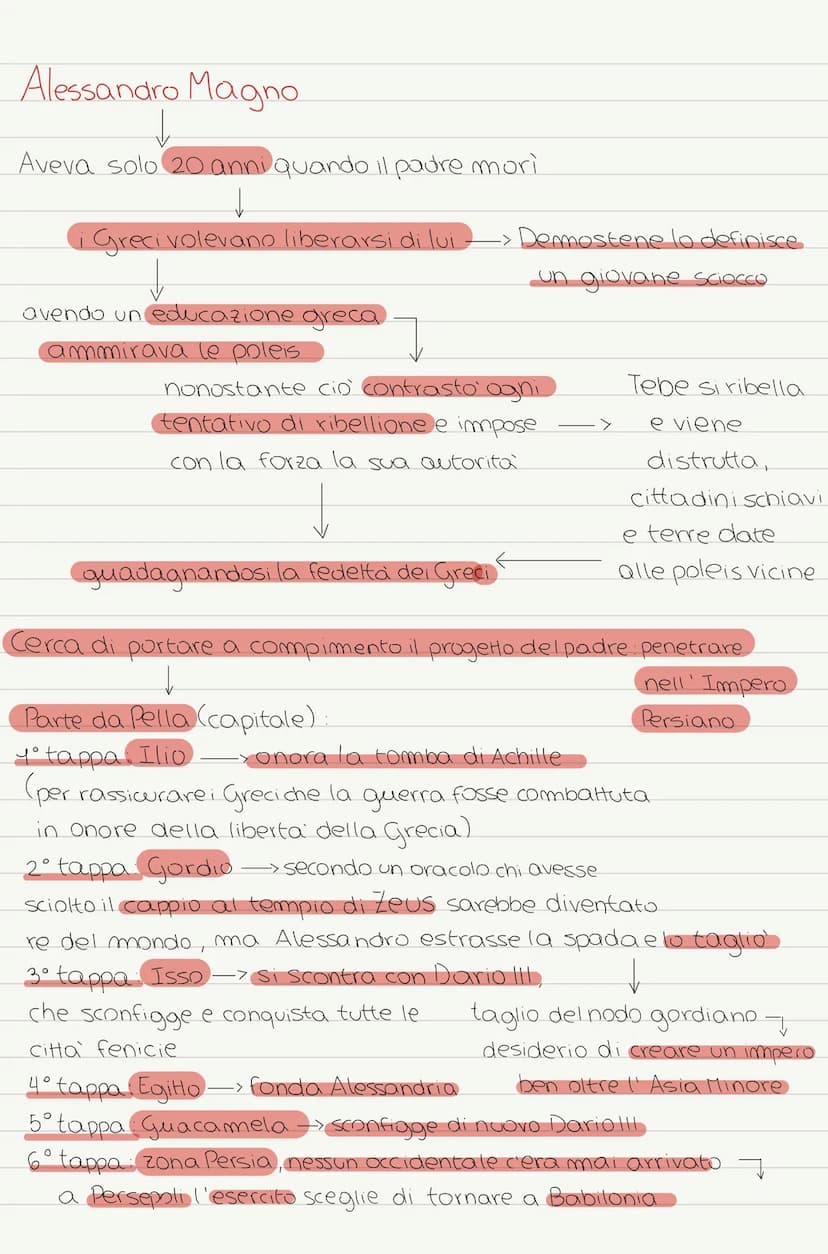 Alessandro Magno
Aveva solo 20 anni quando il padre morì
i Greci volevano liberarsi di lui → Demostene lo definisce
un giovane sciocco
avendo un educazione greca
ammirava le poleis
nonostante ciò contrastò ogni
tentativo di ribellione e impose →
con la forza la sua autorità
Tebe si ribella
e viene
distrutta,
cittadini schiavi
e terre date
alle poleis vicine
guadagnandosi la fedeltà dei Greci
Cerca di portare a compimento il progetto del padre: penetrare
nell'Impero
Persiano
Parte da Pella (capitale):
1° tappa: Ilio → onora la tomba di Achille
(per rassicurare i Greci che la guerra fosse combattuta
in onore della libertà della Grecia)
2° tappa: Gordio → secondo un oracolo chi avesse
sciolto il cappio al tempio di Zeus sarebbe diventato
re del mondo, ma Alessandro estrasse la spada e lo tagliò
3° tappa: Isso → si scontra con Dario III,
che sconfigge e conquista tutte le
città fenicie
taglio del nodo gordiano
desiderio di creare un impero
ben oltre l'Asia Minore
4° tappa: Egitto → fonda Alessandria
5° tappa: Guacamela → sconfigge di nuovo Dario III
6° tappa: zona Persia, nessun occidentale c'era mai arrivato
a Persepoli l'esercito sceglie di tornare a Babilonia